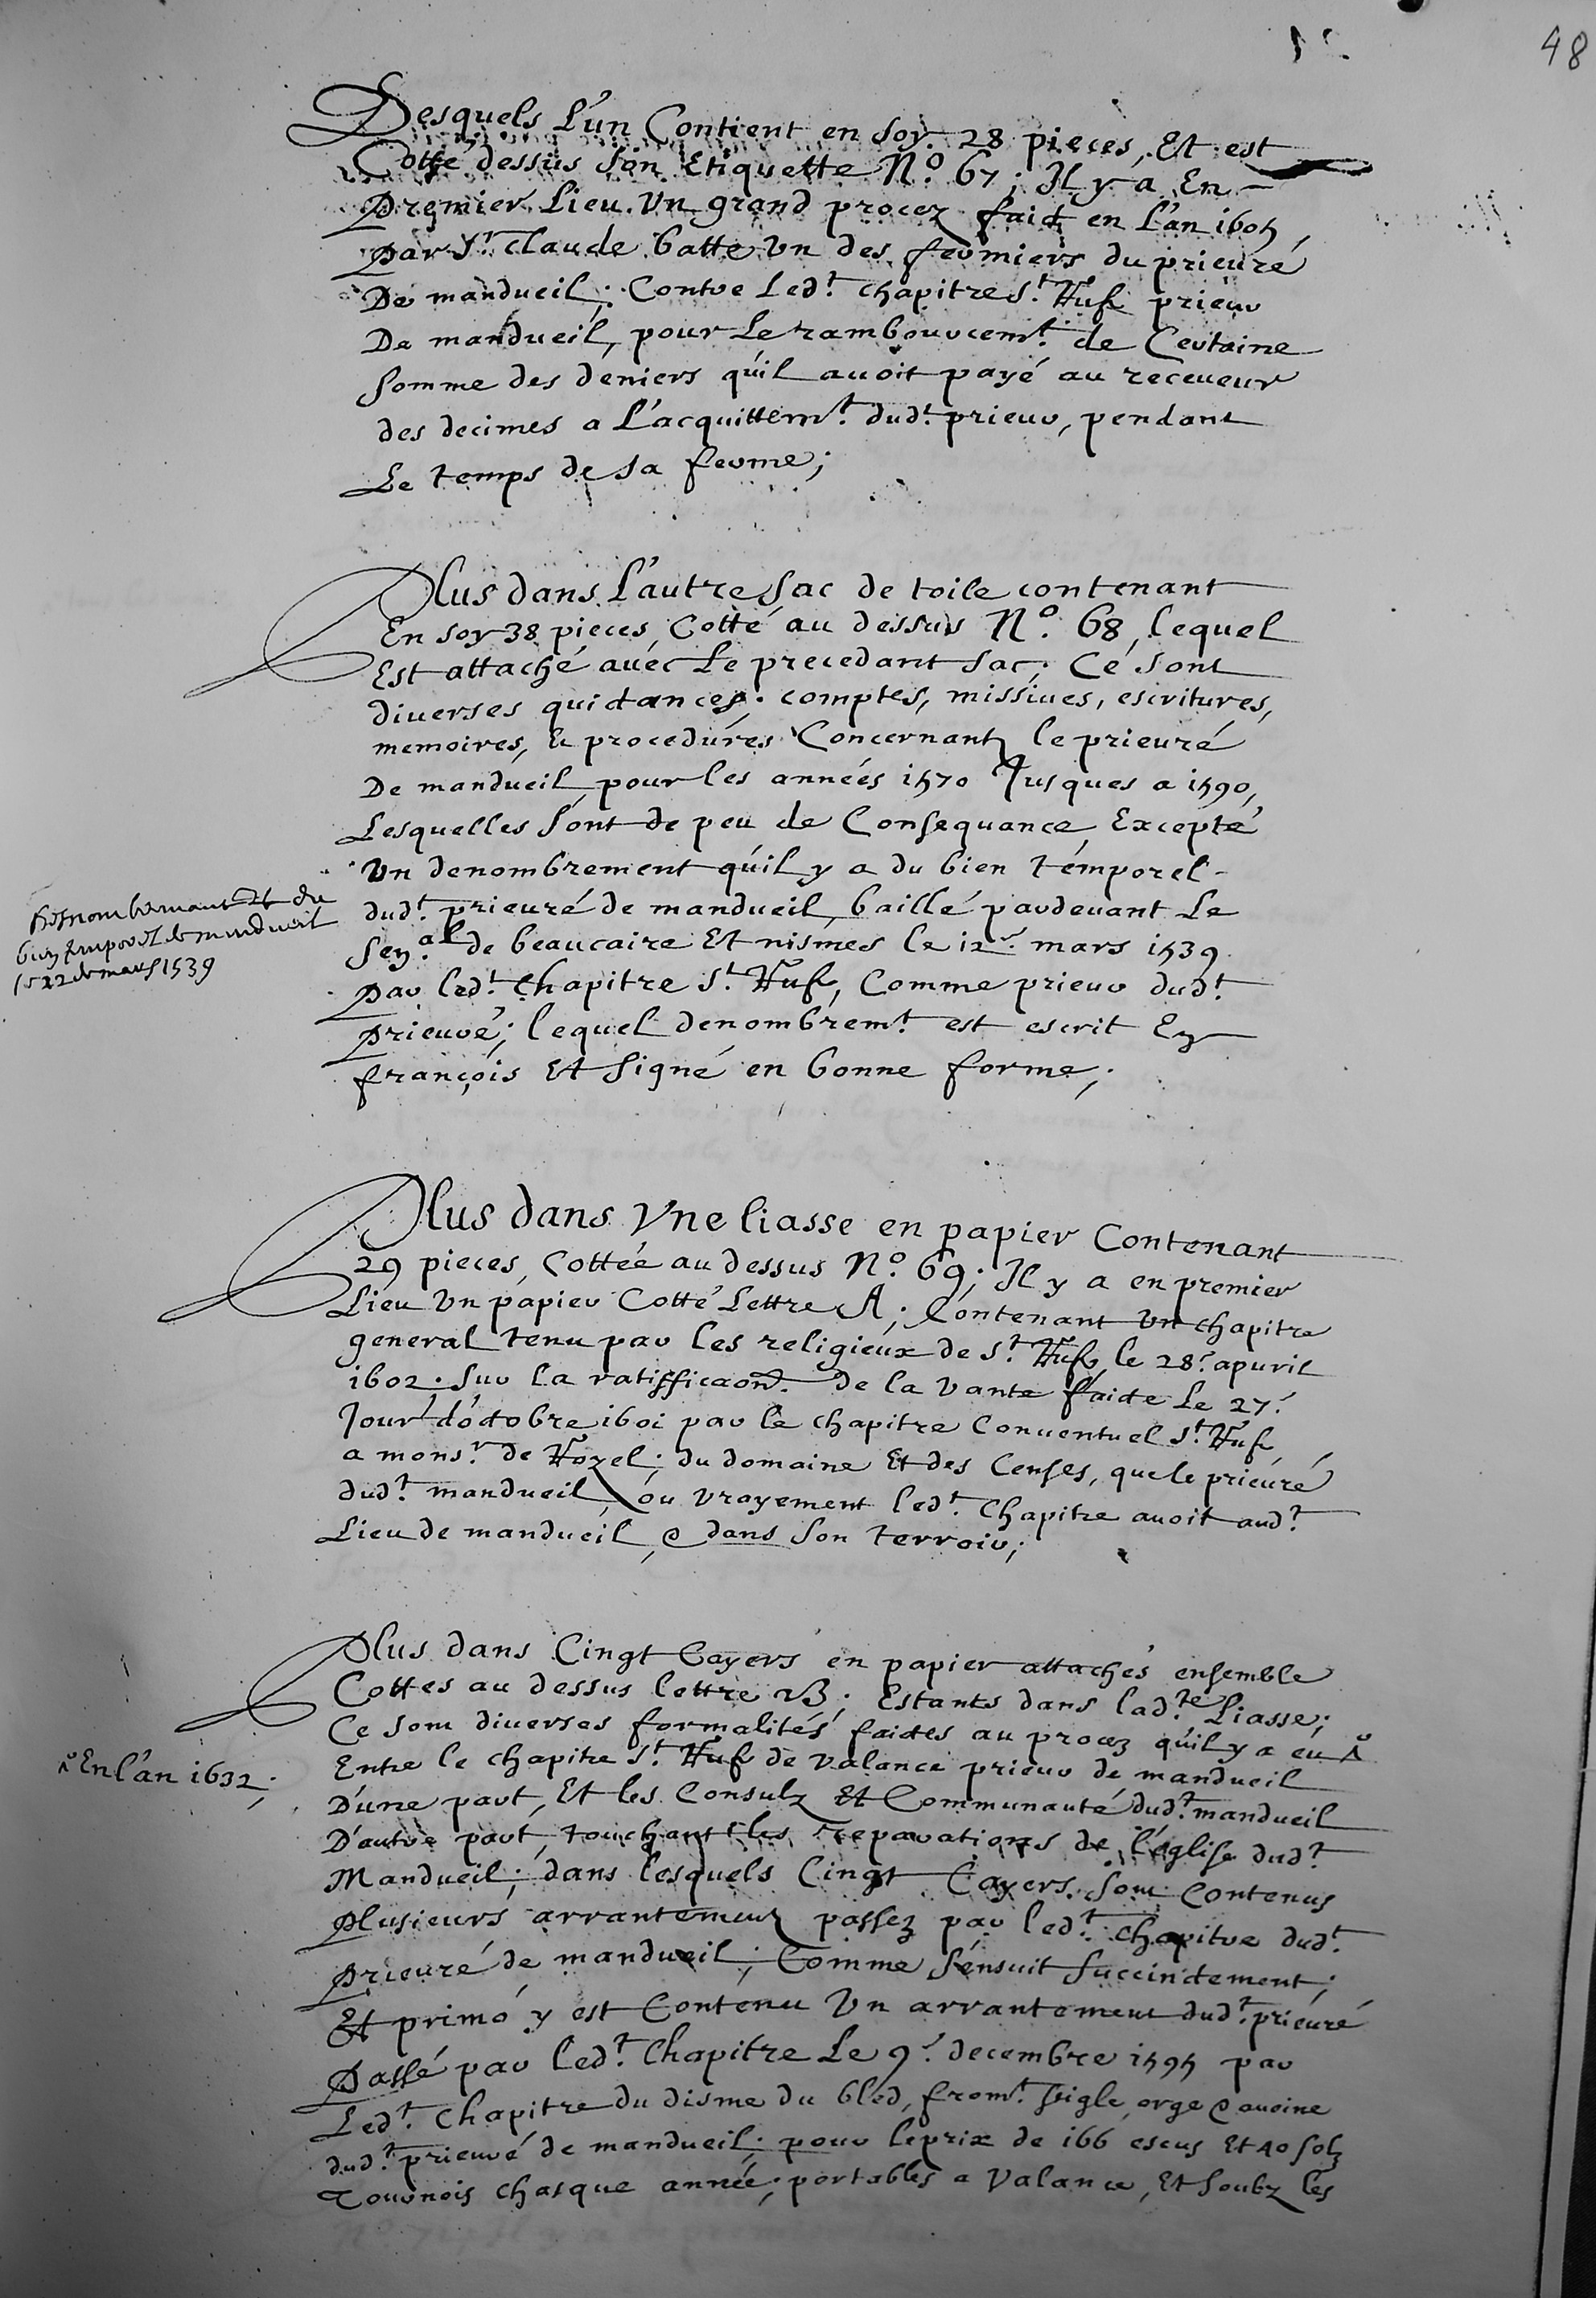 48
Desquels L'un Contient en soy 28 pieces, Et est
Cotté dessus son Etiquette N.º 67; Il y a En
Premier Lieu Un grand procez faict en l'an 1605
Par Sr Claude batte Un des fermiers du prieuré
De mandueil; Contre Led.t chapitre S.t Ruf prieur
De mandueil, pour Le rambourcem.t de Certaine
somme des deniers qu'il auoit payé au receueur
des decimes a L'acquittem.t dud.t prieur, pendant
Le temps de sa ferme;
Plus dans L'autre sac de toile contenant
En soy 38 pieces, Cotté au dessus N.º 68, lequel
Est attaché auéc Le precedant sac; Cé sont
diuerses quictances, comptes, missiues, escritures,
memoires, & procedures Concernant le prieuré
De mandueil pour les années 1570 Jusques a 1590,
Lesquelles sont de peu de Consequance, Excepté
Un denombrement qu'il y a du bien temporel
dud.t prieuré de mandueil, baillé pardeuant Le
Sen.al de beaucaire Et nismes le 12e mars 1539
Par led.t Chapitre S.t Ruf, Comme prieur dud.t
prieuré; lequel denombrem.t est escrit En
françois Et signé en bonne forme;
du
bien temporel de mandueil
le 22 de mars 1539
Plus dans Vne liasse en papier Contenant
29 pieces, Cottée au dessus N.º 69; Il y a en premier
Lieu Un papier Cotté Lettre A; Contenant Un chapitre
general tenu par les religieux de S.t Ruf, le 28.e apuril
1602. sur la ratifficaon. de la Vante faicte Le 27.e
Jour d'octobre 1601 par le chapitre Conuentuel S.t Ruf,
a mons.r de Rozel; du domaine Et des Censes, que le prieuré
dud.t mandueil, ou Vrayement led.t Chapitre auoit aud.t
Lieu de mandueil, & dans son terroir;
Plus dans Cingt Cayers en papier attachés ensemble
Cottes au dessus lettre B; Estants dans lad.te Liasse;
Ce sont diuerses formalités faictes au procez qu'il y a eu
Entre le chapitre S.t Ruf de Valance prieur de mandueil
D'une part, Et les Consulz Et Communauté dud.t mandueil
D'autre part, touchant les reparations de l'église dud.t
Mandueil; dans lesquels Cingt Cayers sont Contenus
Plusieurs arrantements passez par led.t chapitre dud.t
prieuré de mandueil; Comme s'ensuit succinctement;
Et primó y est Contenu Un arrantement dud.t prieuré
Passé par led.t Chapitre Le 9.e decembre 1595 par
Led.t Chapitre du disme du bled, from.t seigle, orge & auoine
dud.t prieuré de mandueil; pour le prix de 166 escus Et 40 solz
Tournois chasque année; portables a Valance, Et soubz les
En l'an 1632;